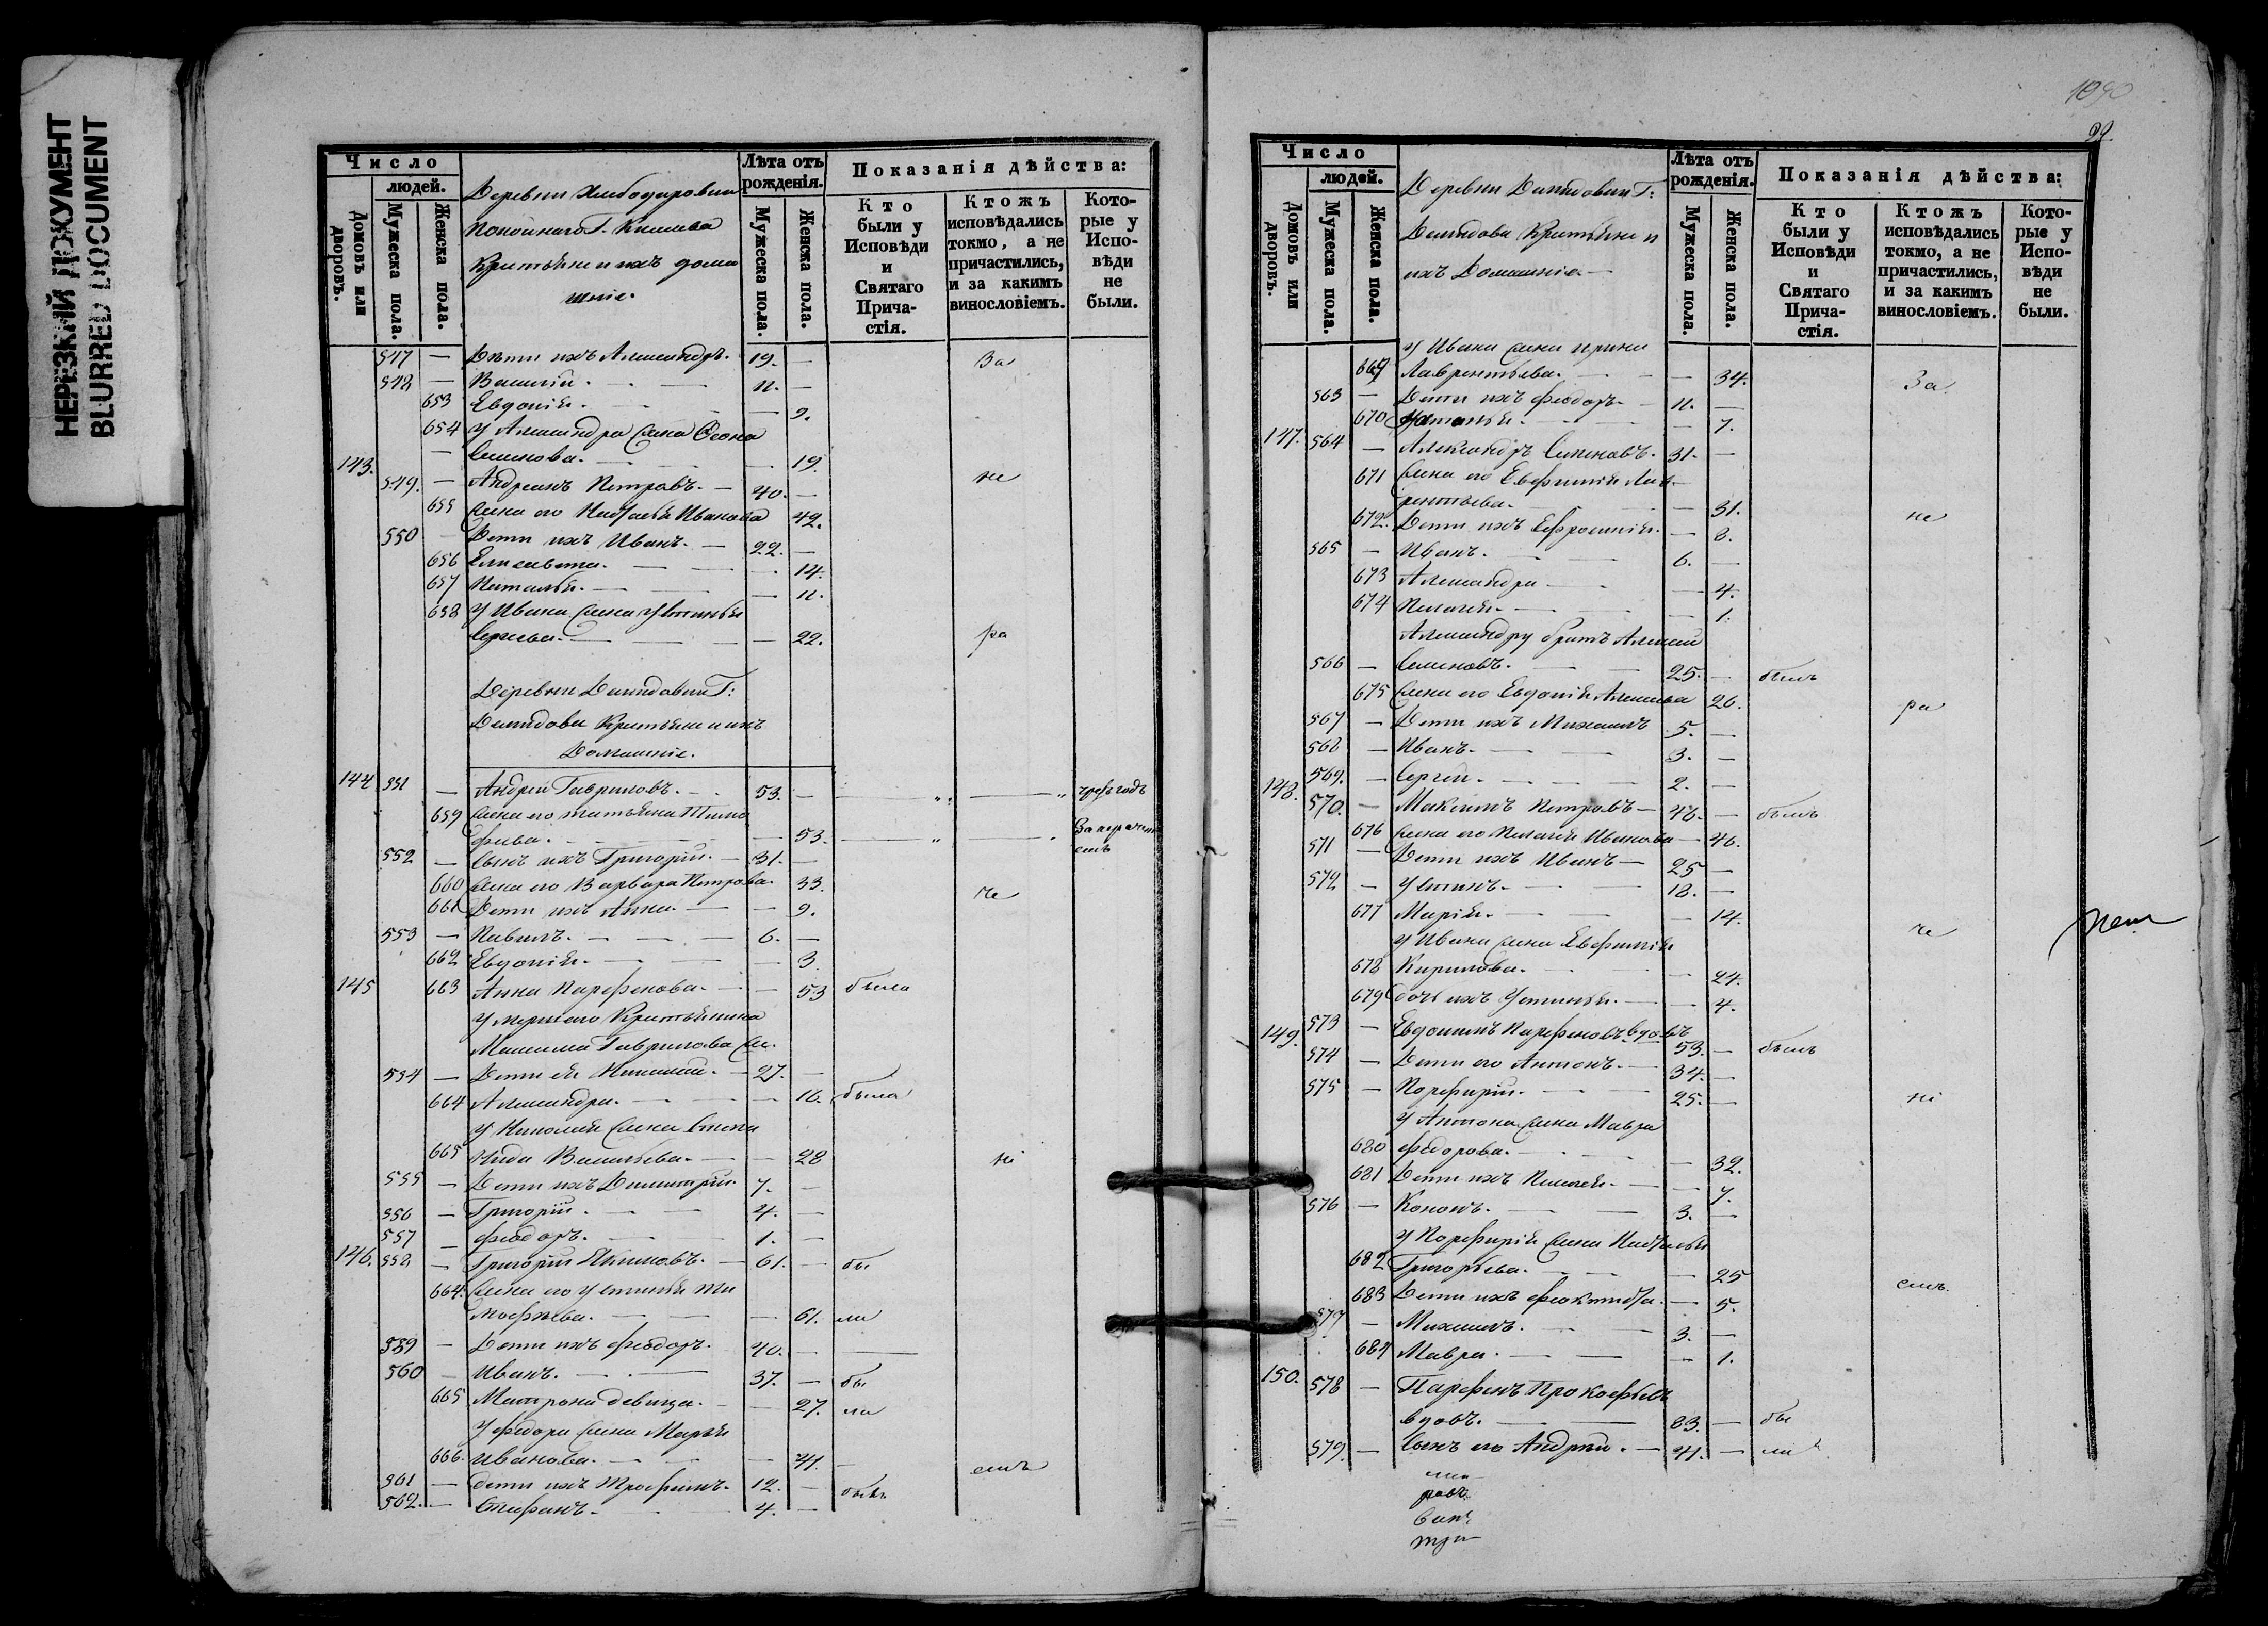 НЕРЕЗКИЙ ДОКУМЕНТ
BLURRED DOCUMENT
Число
людей.
Домовъ или дворовъ.
Мужеска пола.
Женска пола.
Деревни Хлебодаровки
покойнаго Г.
Крестьяне и ихъ дома
шніе.
Лѣта отъ рожденія.
Мужеска пола.
Женска пола.
Показанія дѣйства:
Кто были у Исповѣди и Святаго Прича-стія.
Ктожъ исповѣдались токмо, а не причастились, и за какимъ винословіемъ.
Кото-рые у Испо-вѣди не были.
547 — Дѣти ихъ Александръ. 19. — За
548 — Василій. 11. —
653 Евдокія. — 9.
654 У Александра жена
— Семенова. — 19.
143. 549. — Андреянъ Петровъ. 40. — не
655 жена его Наталья Иванова 42.
550 — Дети ихъ Иванъ. 22. —
656 Елисавета. — 14.
657 Наталья. — 11.
658 У Ивана жена Устинья
Сергѣева. — 22. ра
Деревни Давыдовки Г:
Демидова Крестьяне и ихъ
Домашніе.
144 551 — Андрей Гавриловъ. 53. —
659 жена его Татьяна Тимо
фѣева. — 53.
552 — Сынъ ихъ Григорій. 31. —
660 жена его Варвара Петрова. 33. че
661 Дети ихъ Анна. — 9.
553 — Павелъ. 6. —
662 Евдокія. — 3
145 663 Анна Парфенова. — 53 была
Умершаго Крестьянина
Максима Гаврилова же.
554 — Дети ея Николай. 27. —
664 Александра. — 18. была
У Николая жена Степа
665 нида Васильева. — 28 ні
555 — Дети ихъ Димитрій. 7. —
556 — Григорій. 4. —
557 — Феодоръ. 1. —
146. 558 — Григорій Якимовъ. 61. — бы
664. жена его Устинья Ти
мофѣева. — 61. ли
559 — Дети ихъ Феодоръ. 40. —
560 — Иванъ. 37. — бы
665 Матрона девица. — 27. ли
У Феодора жена Марья
666. Иванова. — 41. емъ
561 — дети ихъ Трофимъ. 12. —
562. — Стефанъ. 4. —
1090
Число
людей.
Домовъ или дворовъ.
Мужеска пола.
Женска пола.
Деревни Давыдовки Г:
Демидова Крестьяне и
ихъ Домашніе.
Лѣта отъ рожденія.
Мужеска пола.
Женска пола.
Показанія дѣйства:
Кто были у Исповѣди и Святаго Прича-стія.
Ктожъ исповѣдались токмо, а не причастились, и за какимъ винословіемъ.
Кото-рые у Испо-вѣди не были.
У Ивана жена Ирина
Лаврентьева. — 34. За
563 — Дети ихъ Феодоръ. 11. —
670 — 7.
147. 564 — Александръ Семеновъ. 31. —
671 жена его Евфимія Лав-
рентьева. — 31. не
672. Дети ихъ Ефросинія. — 8.
565 — Иванъ. 6. —
673 Александра — 4.
674 Пелагея. — 1.
Александру братъ Алексей
566 — Семеновъ. 25. — былъ
675 жена его Евдокія Алексѣева 26. ра
567 — Дети ихъ Михаилъ 5. —
568 — Иванъ. 3. —
569. — Сергей. 2. —
148. 570. — Максимъ Петровъ 48. — былъ
676 жена его Пелагея Иванова — 46.
571 — Дети ихъ Иванъ 25 —
572 — Устинъ. 18. —
677 Марія. — 14. че
У Ивана жена Евфимія
678 Кирилова. — 24.
679 дочь ихъ Устинья. — 4.
149. 573 — Евдокимъ Парфеновъ вдовъ 53. — былъ
574 — Дети его Антонъ. 34. —
575 — Порфирій. 25. — ні
У Антона жена Мавра
680 Федорова. — 32.
681 Дети ихъ Пелагея. — 7.
576 — Кононъ. 3. —
У Порфирія жена Наталья
682 Григорьева. — 25 емъ.
683 Дети ихъ Феоктиста. — 5.
577 — Михаилъ. 3. —
684 Мавра. — 1.
150. 578 — Парфенъ Прокофьевъ
вдовъ. 83. — бы
579. — Сынъ его Андрей. 41. — ли